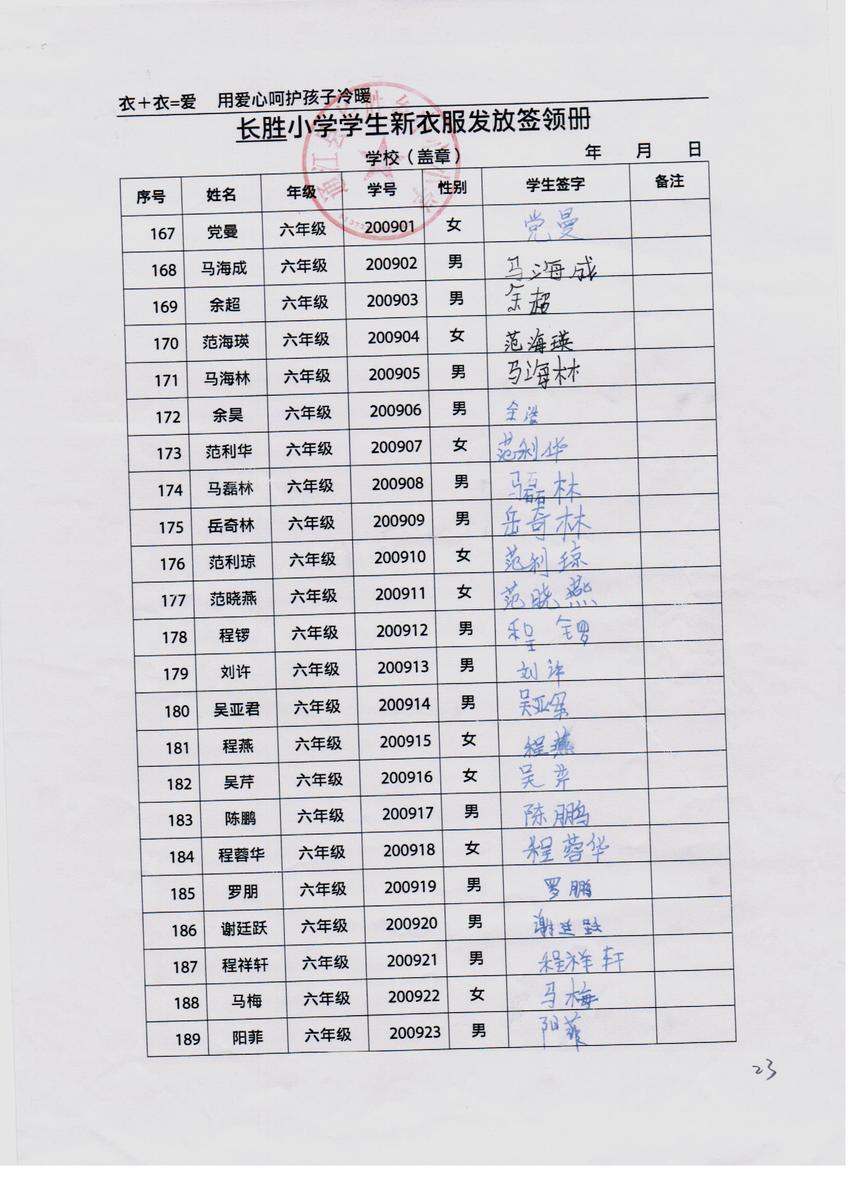 衣+衣=爱 用爱心呵护孩子冷暖
长胜小学学生新衣服发放签领册
学校（盖章） 年 月 日
序号 姓名 年级 学号 性别 学生签字 备注
167 党曼 六年级 200901 女 党曼
168 马海成 六年级 200902 男 马海成
169 余超 六年级 200903 男 余超
170 范海瑛 六年级 200904 女 范海瑛
171 马海林 六年级 200905 男 马海林
172 余昊 六年级 200906 男
173 范利华 六年级 200907 女 范利华
174 马磊林 六年级 200908 男 马磊林
175 岳奇林 六年级 200909 男 岳奇林
176 范利琼 六年级 200910 女 范利琼
177 范晓燕 六年级 200911 女 范晓燕
178 程锣 六年级 200912 男 程锣
179 刘许 六年级 200913 男 刘许
180 吴亚君 六年级 200914 男 吴亚军
181 程燕 六年级 200915 女 程燕
182 吴芹 六年级 200916 女 吴芹
183 陈鹏 六年级 200917 男 陈鹏
184 程蓉华 六年级 200918 女 程蓉华
185 罗朋 六年级 200919 男 罗鹏
186 谢廷跃 六年级 200920 男 谢廷跃
187 程祥轩 六年级 200921 男 程祥轩
188 马梅 六年级 200922 女 马梅
189 阳菲 六年级 200923 男 阳菲
23